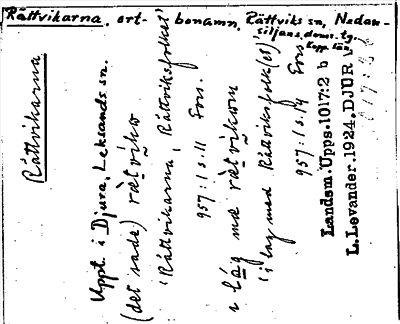 Rättvikarna, ort- bonamn, Rättviks sn, Nedan-
siljans doms. tg.
Kopp. län
Rättvikarna
Uppt. i Djura, Leksands sn.
(det sade) rætvikar
'Rättvikarna, Rättviksfolket'
957:1 s. 11 Fors.
i lag mæ rætvikom
'i lag med Rättviksfolk(et)'
957:1 s. 14 Fors
Landsm. Upps. 1017:2 b
L. Levander. 1924. DJUR